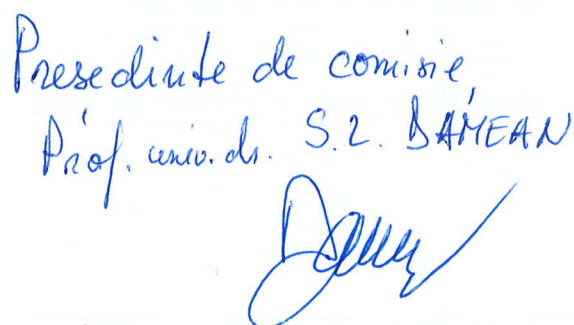 Presedinte de comisie,
Prof. univ. dr. S.L. DAMEAN